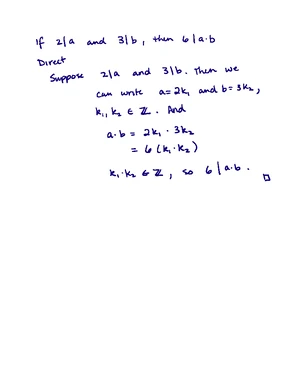 If 2|a and 3|b, then 6|a·b
Direct
Suppose 2|a and 3|b. Then we
can write a=2k₁ and b=3k₂,
k₁, k₂ ∈ ℤ. And
a·b = 2k₁ · 3k₂
= 6(k₁·k₂)
k₁·k₂ ∈ ℤ, so 6|a·b. □